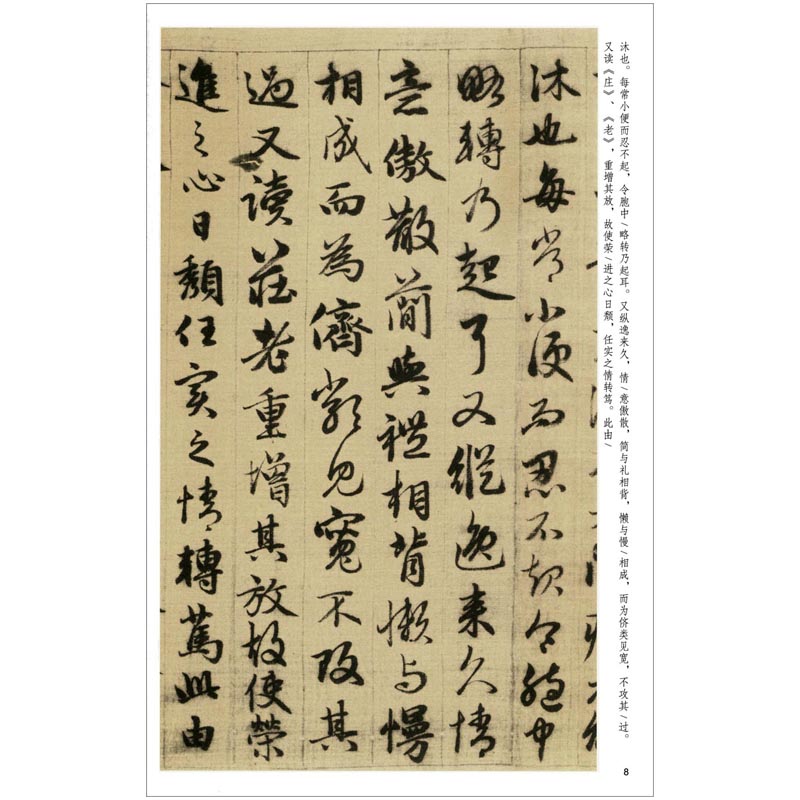 沐也。每常小便而忍不起,令胞中\略转乃起耳。又纵逸来久,情\意傲散,简与礼相背,懒与慢\相成,而为侪类见宽,不攻其\过。
又读《庄》、《老》,重增其放,故使荣\进之心日颓,任实之情转笃。此由\
沐也每常小便而忍不起令胞中
略轉乃起耳又縱逸来久情
意傲散簡與禮相背懶与慢
相成而為儕類見寬不攻其
過又讀莊老重增其放故使榮
進之心日頹任實之情轉篤此由
8